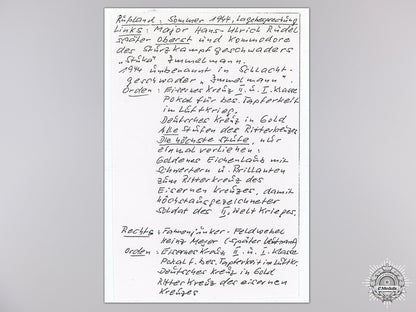 Rußland: Sommer 1944, Lagebesprechung
Links: Major Hans-Ulrich Rudel
später Oberst und Kommodore
des Sturzkampfgeschwaders
"Stuka" Immelmann.
1944 umbenannt in Schlacht-
geschwader "Immelmann".
Orden: Eisernes Kreuz II. u. I. Klasse
Pokal für bes. Tapferkeit
im Luftkrieg.
Deutsches Kreuz in Gold
Alle Stufen des Ritterkreuzes
Die höchste Stufe, nur
einmal verliehen:
Goldenes Eichenlaub mit
Schwertern u. Brillanten
zum Ritterkreuz des
Eisernen Kreuzes, damit
höchstausgezeichneter
Soldat des II. Welt Krieges.
Rechts: Fahnenjunker-Feldwebel
Heinz Meyer (später Leutnant)
Orden: Eisernes Kreuz II. u. I. Klasse
Pokal f. bes. Tapferkeit im Luftkr.
Deutsches Kreuz in Gold
Ritterkreuz des eisernen
Kreuzes
eMedals